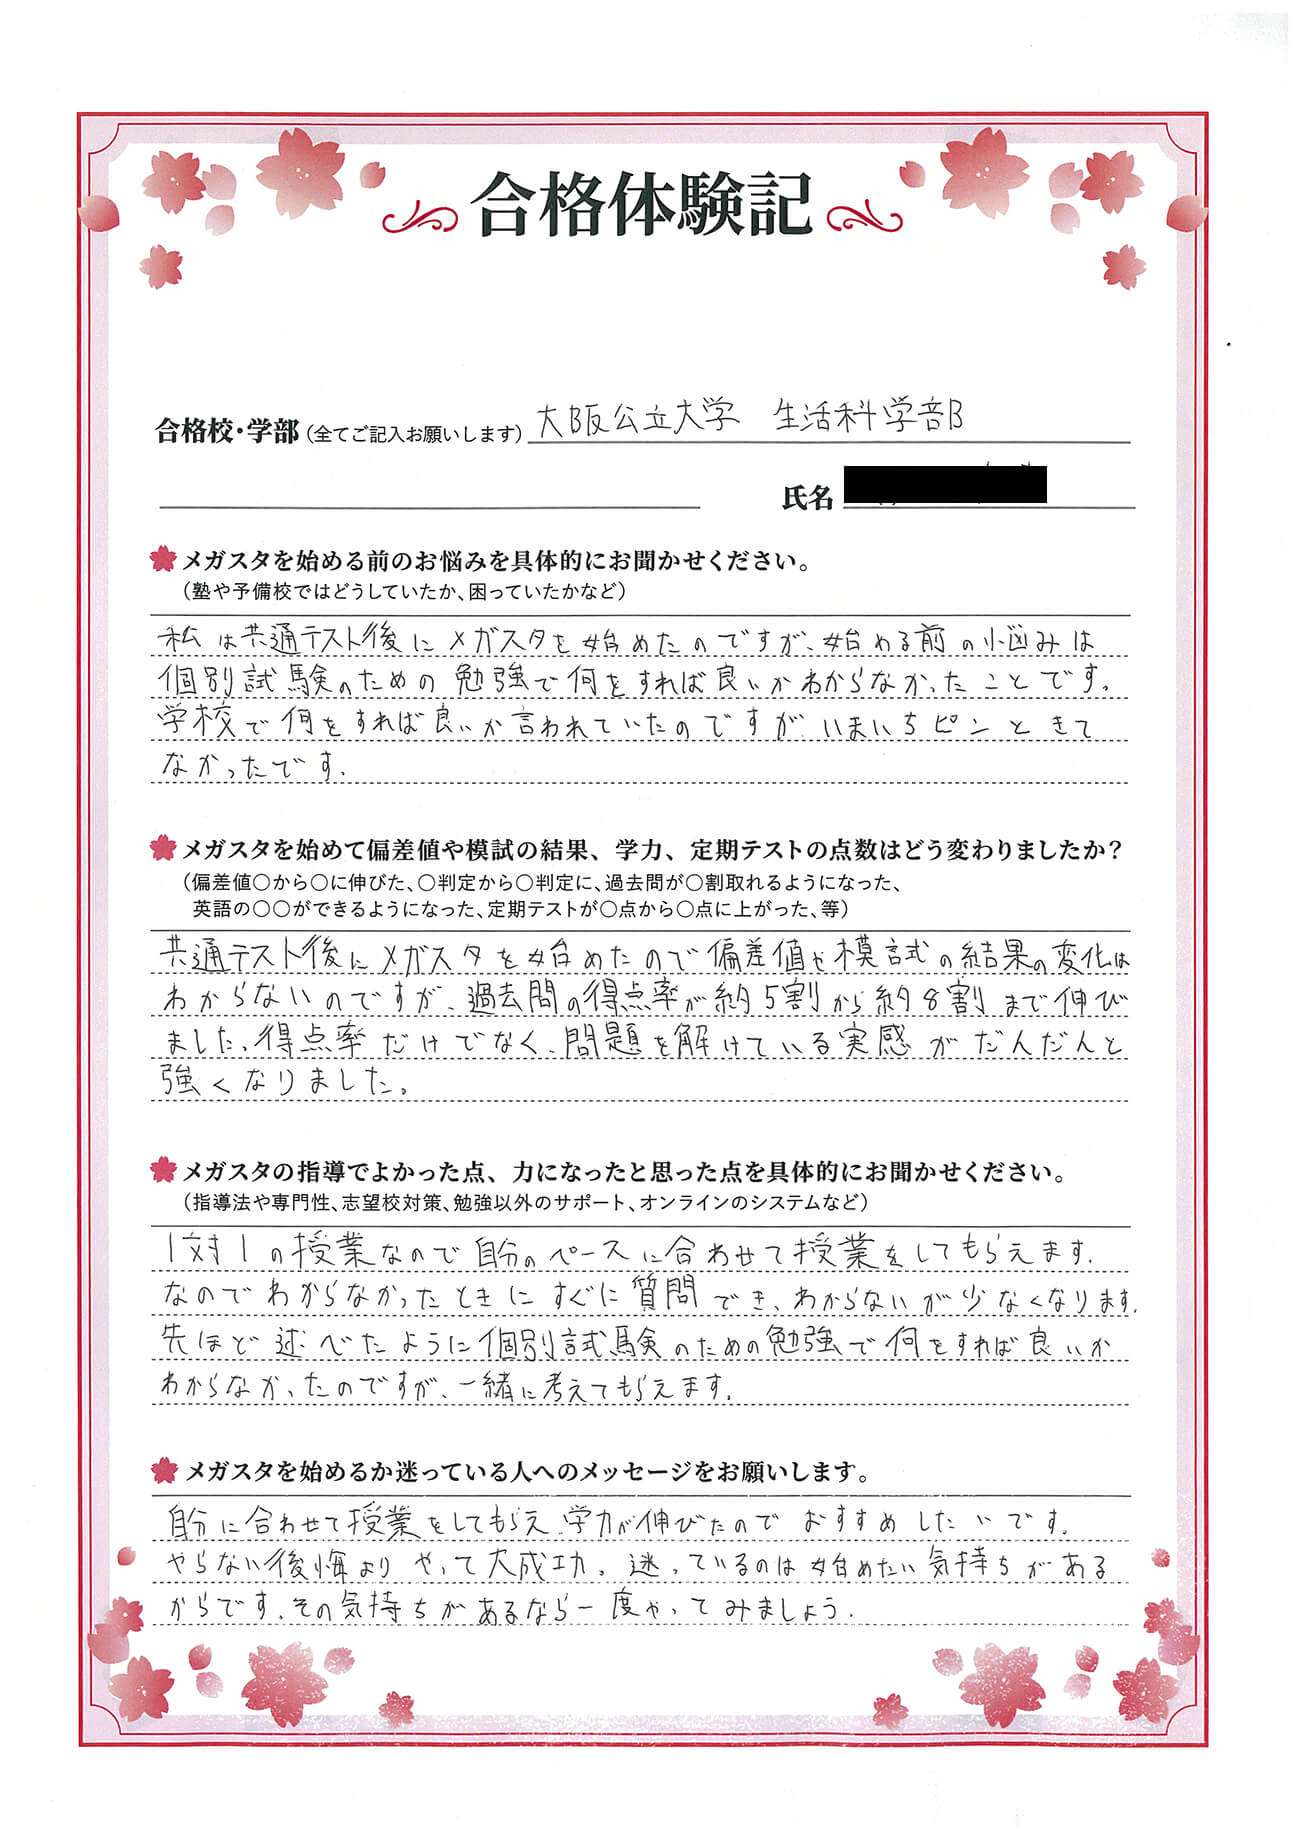 合格体験記
合格校・学部(全てご記入お願いします) 大阪公立大学 生活科学部
氏名
メガスタを始める前のお悩みを具体的にお聞かせください。
(塾や予備校ではどうしていたか、困っていたかなど)
私は共通テスト後にメガスタを始めたのですが、始める前の悩みは
個別試験のための勉強で何をすれば良いかわからなかったことです。
学校で何をすれば良いか言われていたのですが、いまいちピンときて
なかったです。
メガスタを始めて偏差値や模試の結果、学力、定期テストの点数はどう変わりましたか？
(偏差値○から○に伸びた、○判定から○判定に、過去問が○割取れるようになった、
英語の○○ができるようになった、定期テストが○点から○点に上がった、等)
共通テスト後にメガスタを始めたので偏差値や模試の結果の変化は
わからないのですが、過去問の得点率が約5割から約8割まで伸び
ました。得点率だけでなく、問題を解けている実感がだんだんと
強くなりました。
メガスタの指導でよかった点、力になったと思った点を具体的にお聞かせください。
(指導法や専門性、志望校対策、勉強以外のサポート、オンラインのシステムなど)
1対1の授業なので自分のペースに合わせて授業をしてもらえます。
なのでわからなかったときにすぐに質問でき、わからないが少なくなります。
先ほど述べたように個別試験のための勉強で何をすれば良いか
わからなかったのですが、一緒に考えてもらえます。
メガスタを始めるか迷っている人へのメッセージをお願いします。
自分に合わせて授業をしてもらえ、学力が伸びたのでおすすめしたいです。
やらない後悔よりやって大成功。迷っているのは始めたい気持ちがある
からです。その気持ちがあるなら一度やってみましょう。